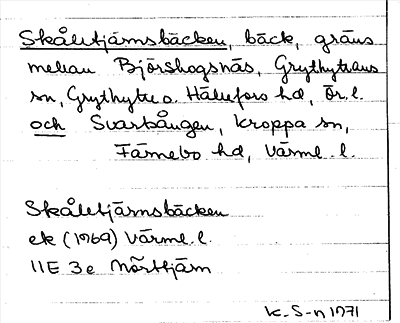 Skåltjärnsbäcken, bäck, gräns
mellan Björskogsnäs, Grythyttans
sn, Grythytte o. Hällefors hd, Ör. l.
och Svartsången, Kroppa sn,
Färnebo hd, Värml. l.
Skåltjärnsbäcken
ek (1969) Värml. l.
11E 3e Mörttjärn
K. S-n 1971